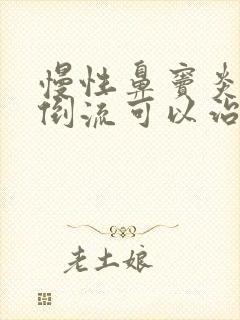 慢性鼻窦炎
倒流可以治
老土娘